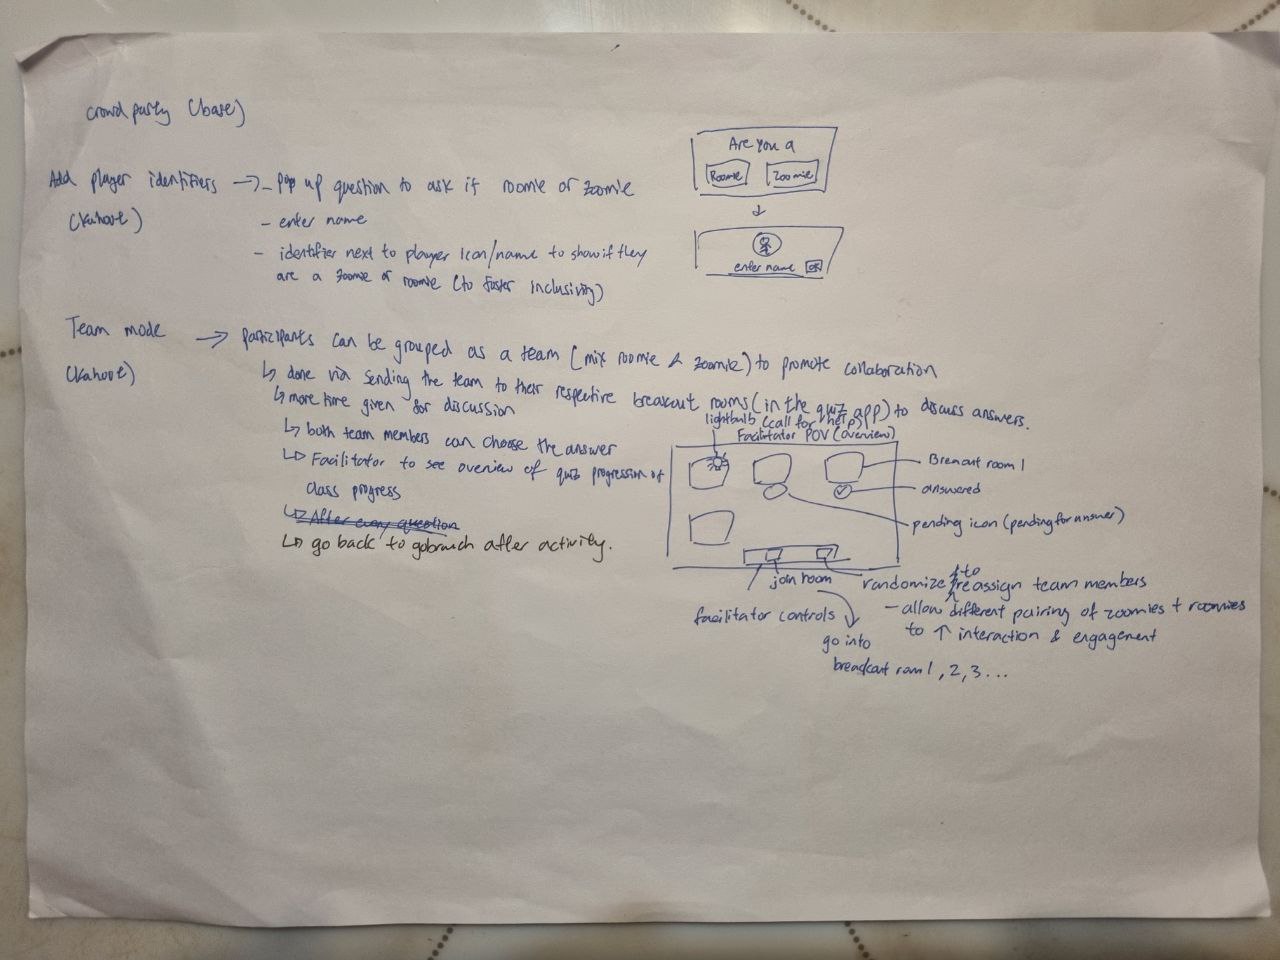 crowdparty (base)
Add player identifiers → - Pop up question to ask if roomie or zoomie
(kahoot)
- enter name
- identifier next to player icon/name to show if they
are a zoomie or roomie (to foster inclusivity)
Are you a
Roomie
Zoomie
enter name
OK
Team mode → participants can be grouped as a team (mix roomie & zoomie) to promote collaboration
(kahoot)
↳ done via sending the team to their respective breakout rooms (in the quiz app) to discuss answers.
↳ more time given for discussion
↳ both team members can choose the answer
↳ Facilitator to see overview of quiz progression of
class progress
↳ After every question
↳ go back to after activity.
lightbulb (call for help)
Facilitator POV (overview)
Breakout room 1
answered
pending icon (pending for answer)
join room
facilitator controls
go into
breakout room 1, 2, 3 ...
randomize to reassign team members
- allow different pairing of zoomies + roomies
to ↑ interaction & engagement